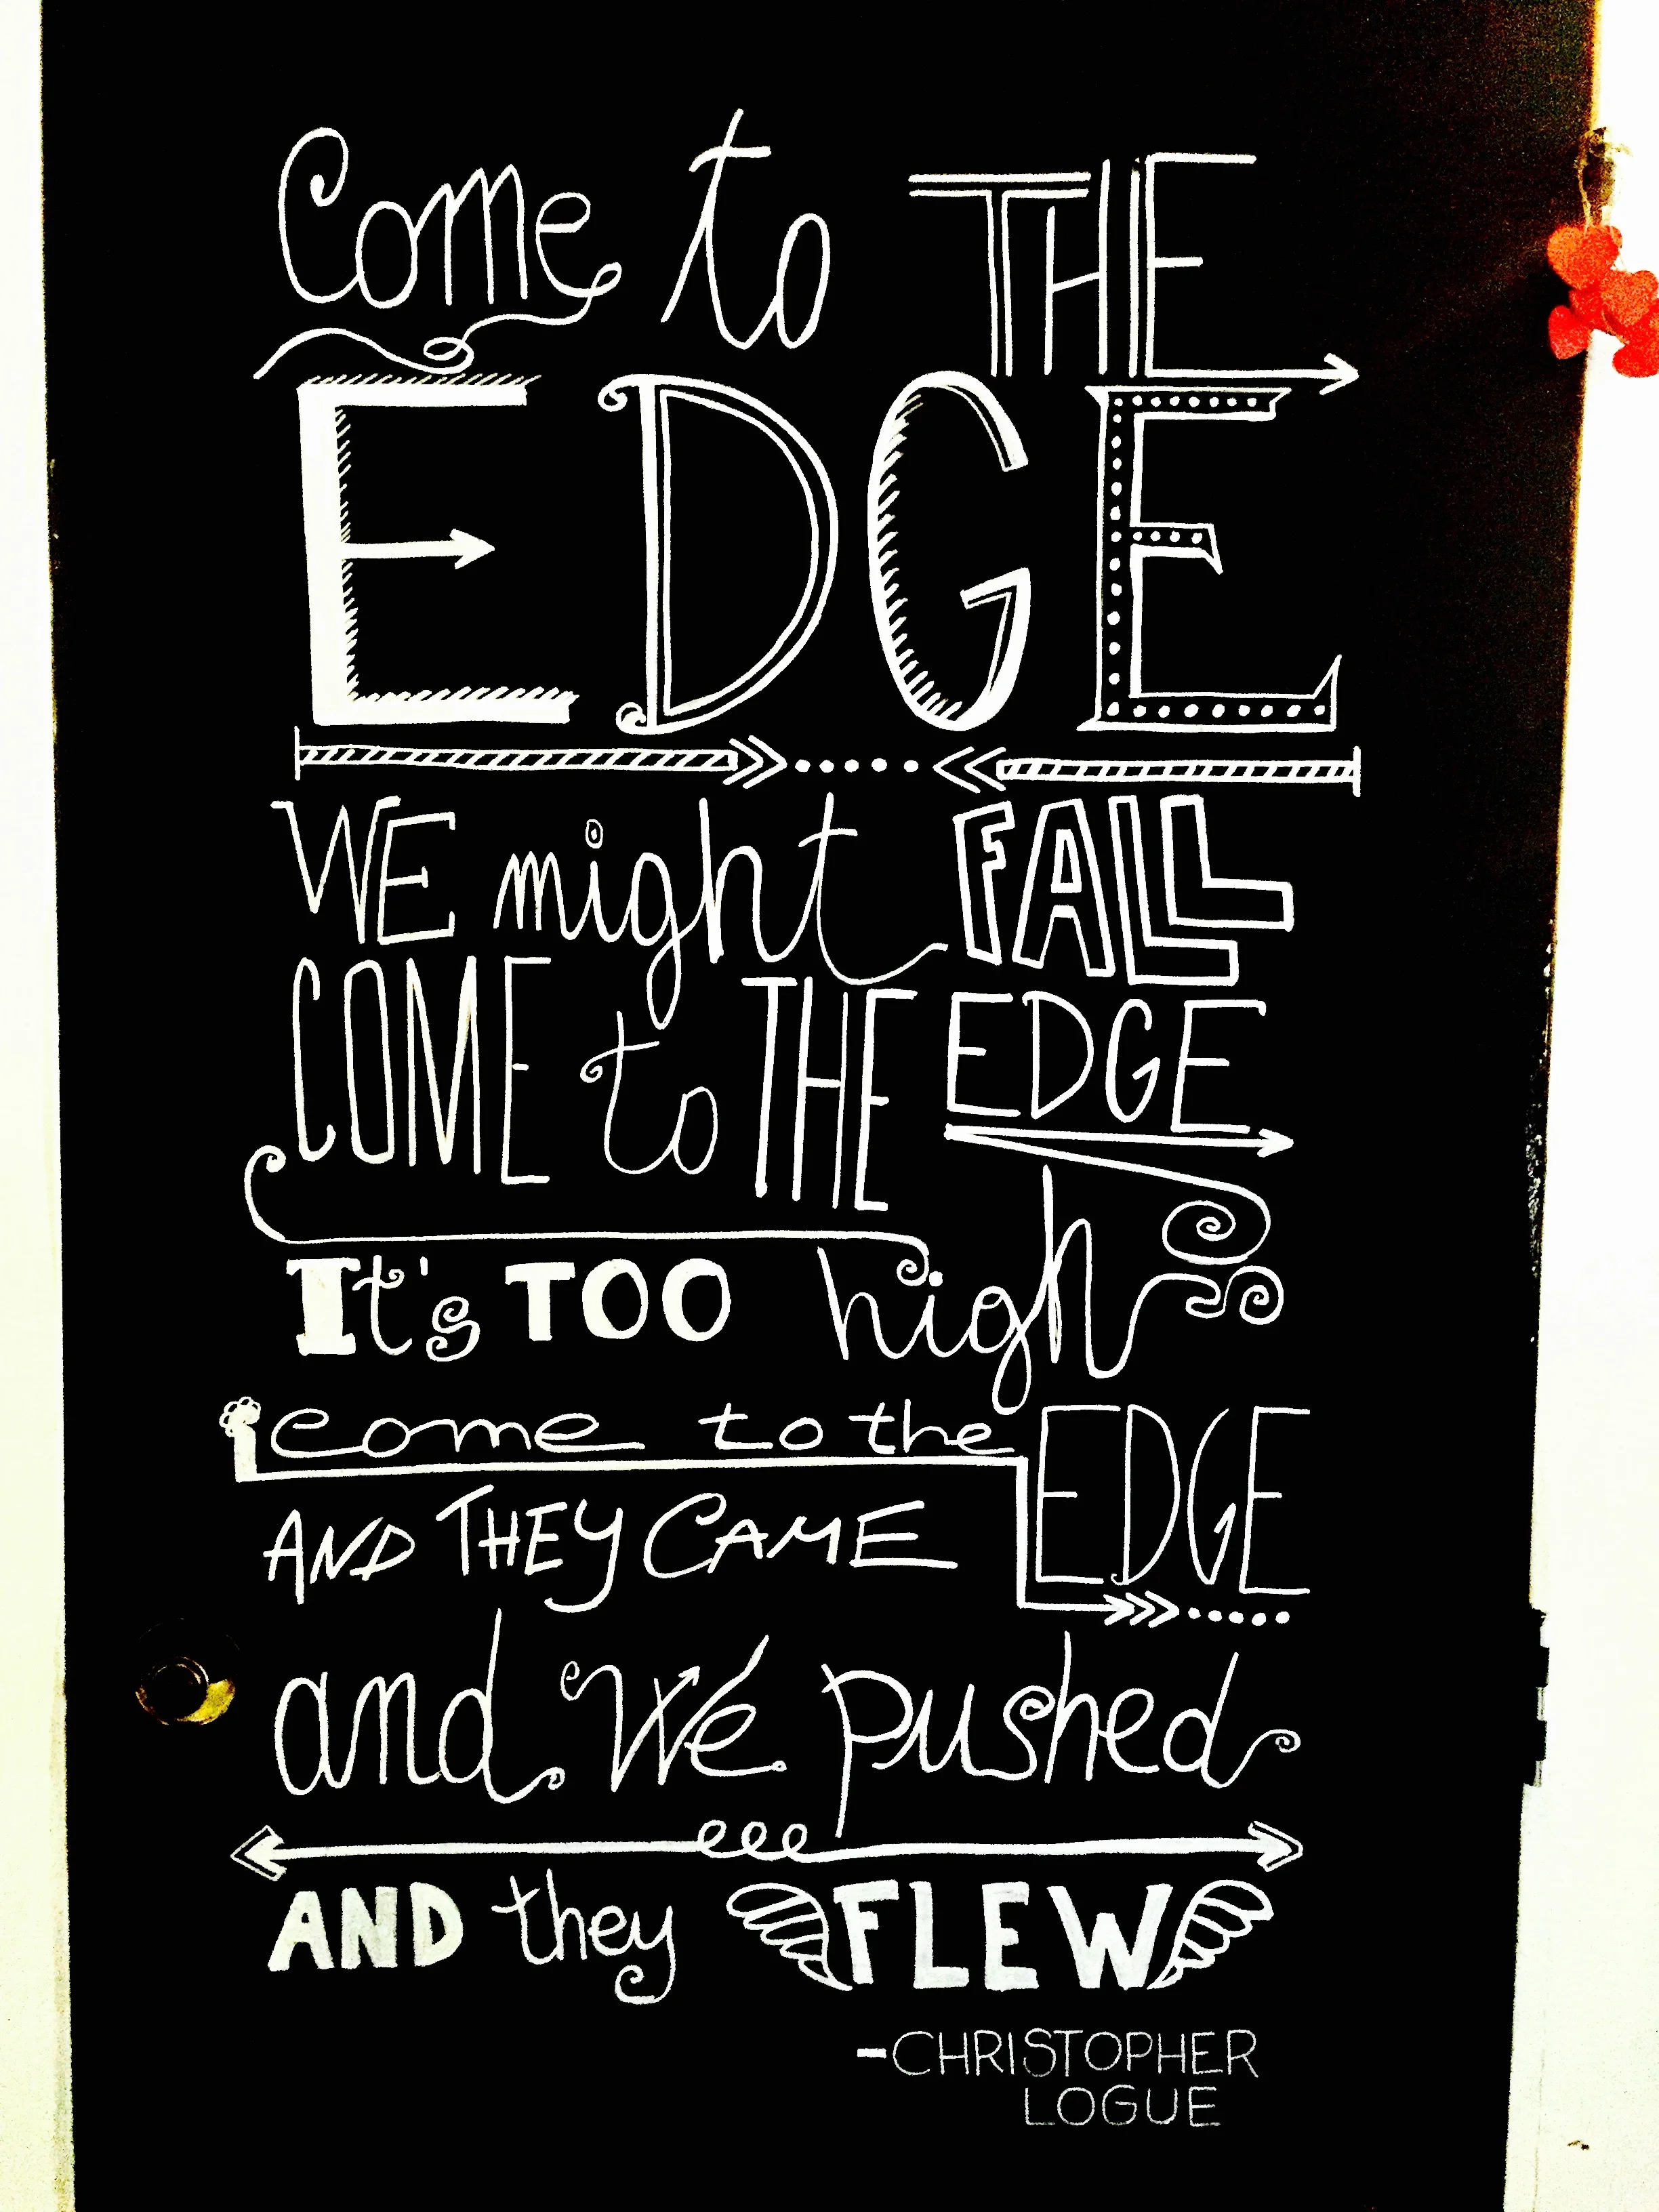 Come to THE
EDGE
WE might FALL
COME to THE EDGE
It's TOO high
come to the EDGE
AND THEY CAME
and We pushed
AND they FLEW
-CHRISTOPHER
LOGUE